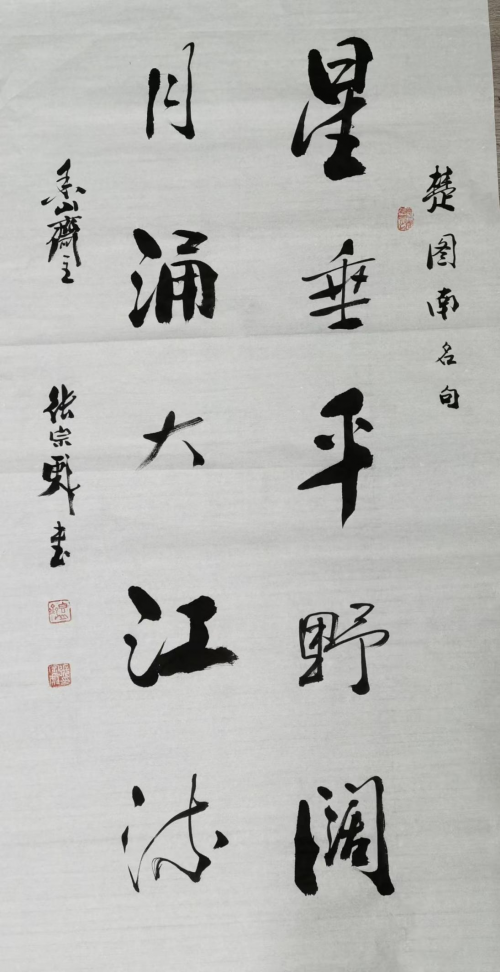 楚图南名句
星垂平野阔
月涌大江流
山齋主
张宗书